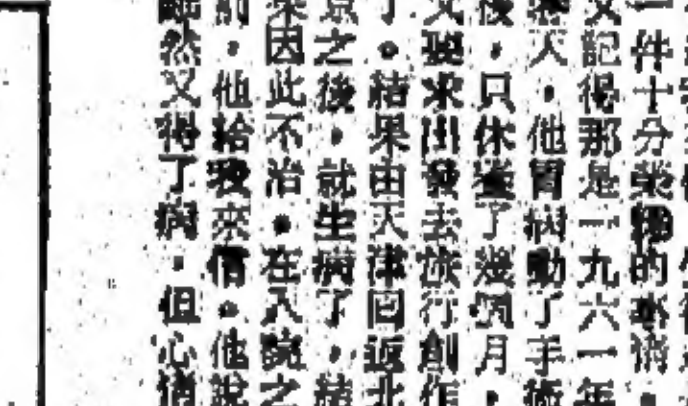 一件十分榮的事情。
記得那是一九六一年
天,他胃病動了手術
後,只休養了幾個月,
又要求出發去旅行創作
了。結果由天津回返北
京之後,就生病了,結
果因此不治。在入院之
前,他給我來信。他說
雖然又得了病,但心情